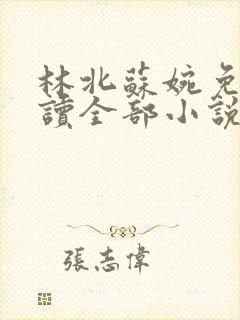 林北蘇婉免
讀全部小說
張志偉